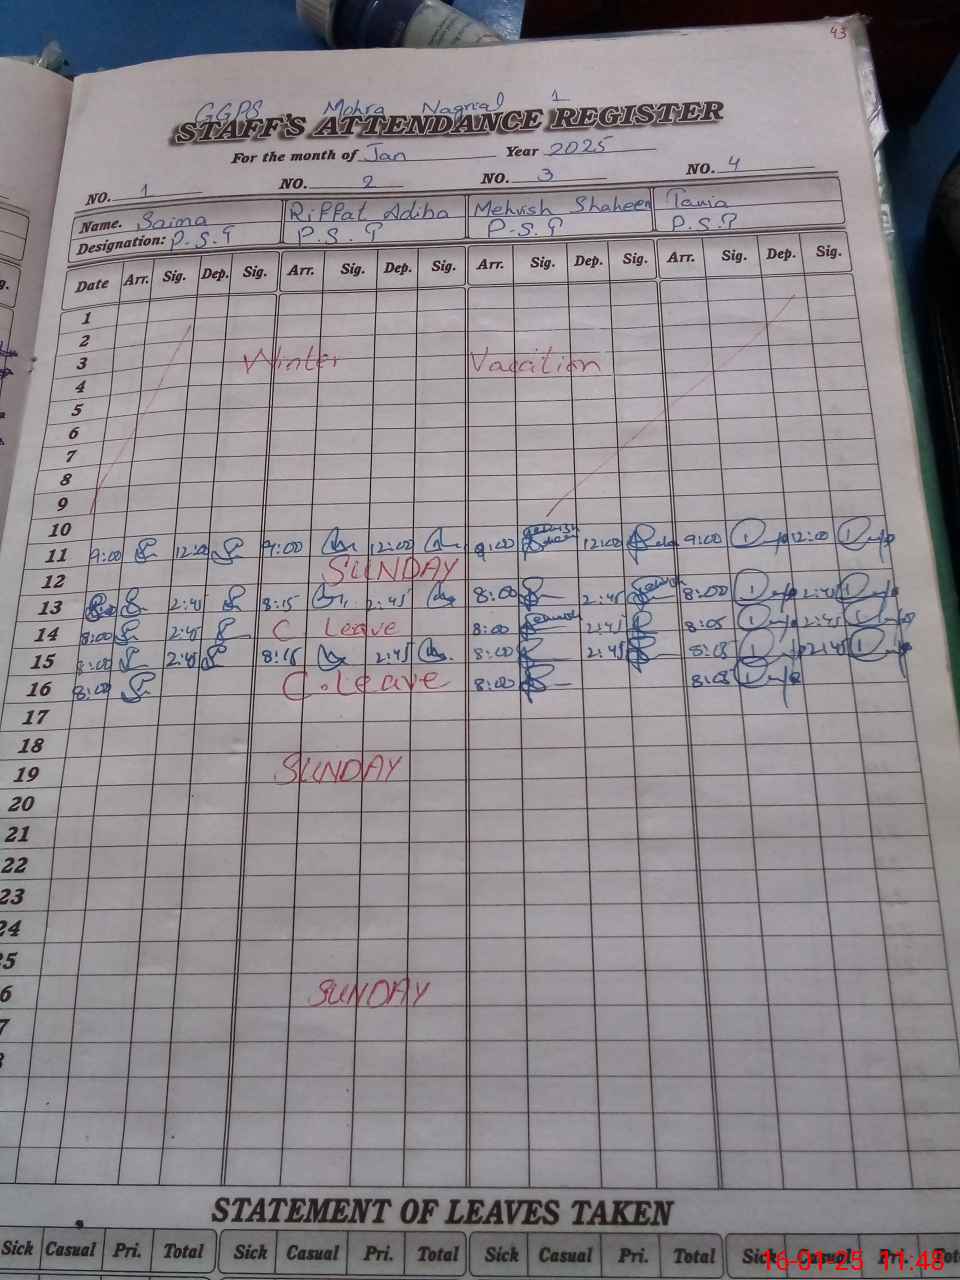 43
GGPS Mohra Nagrial 1
STAFF'S ATTENDANCE REGISTER
For the month of Jan Year 2025
NO. 1 NO. 2 NO. 3 NO. 4
Name. Saima Riffat Adiba Mehvish Shaheen Tania
Designation: P.S.T P.S.T P.S.T P.S.T
Date Arr. Sig. Dep. Sig. Arr. Sig. Dep. Sig. Arr. Sig. Dep. Sig. Arr. Sig. Dep. Sig.
1
2
3 Winter Vacaition
4
5
6
7
8
9
10
11 9:00 12:00 9:00 12:00 9:00 12:00 9:00 12:00
12 SUNDAY
13 2:45 8:15 2:45 8:00 2:45 8:00 2:45
14 8:00 2:45 C. Leave 8:00 2:45 8:05 2:45
15 8:00 2:45 8:15 2:45 8:00 2:45 8:05 2:45
16 8:00 C. Leave 8:00 8:03
17
18
19 SUNDAY
20
21
22
23
24
5
6 SUNDAY
7
STATEMENT OF LEAVES TAKEN
Sick Casual Pri. Total Sick Casual Pri. Total Sick Casual Pri. Total Sick Casual Pri. Tot
16-01-25 11:48